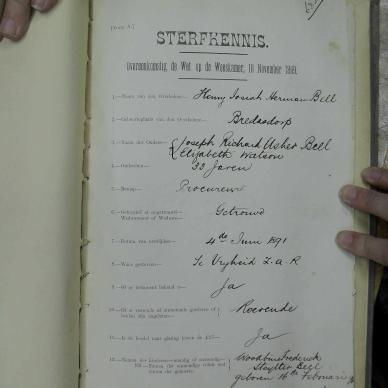 [Form A.]
STERFKENNIS.
Overeenkomstig de Wet op de Weeskamer, 10 November 1891.
1.—Naam van den Overledene— Henry Josiah Herman Bell
2.—Geboorteplaats van den Overledene— Bredasdorp
3.—Naam der Ouders— { Joseph Richard Usher Bell
Elizabeth Watson
4.—Ouderdom— 33 Jaren
5.—Beroep— Procureur
6.—Gehuwd of ongetrouwd— Getrouwd
Weduwnaar of Weduwe—
7.—Datum van overlijden— 4de Juni 1891
8.—Waar gestorven— Te Vryheid Z.A.R
9.—Of er testament bestaat is— Ja
10.—Of er roerende of onroerende goederen of Roerende
Ja
12.—Namen der kinderen— Woodbine Frederick
Stuytler Bell
geboren 16de Februarij